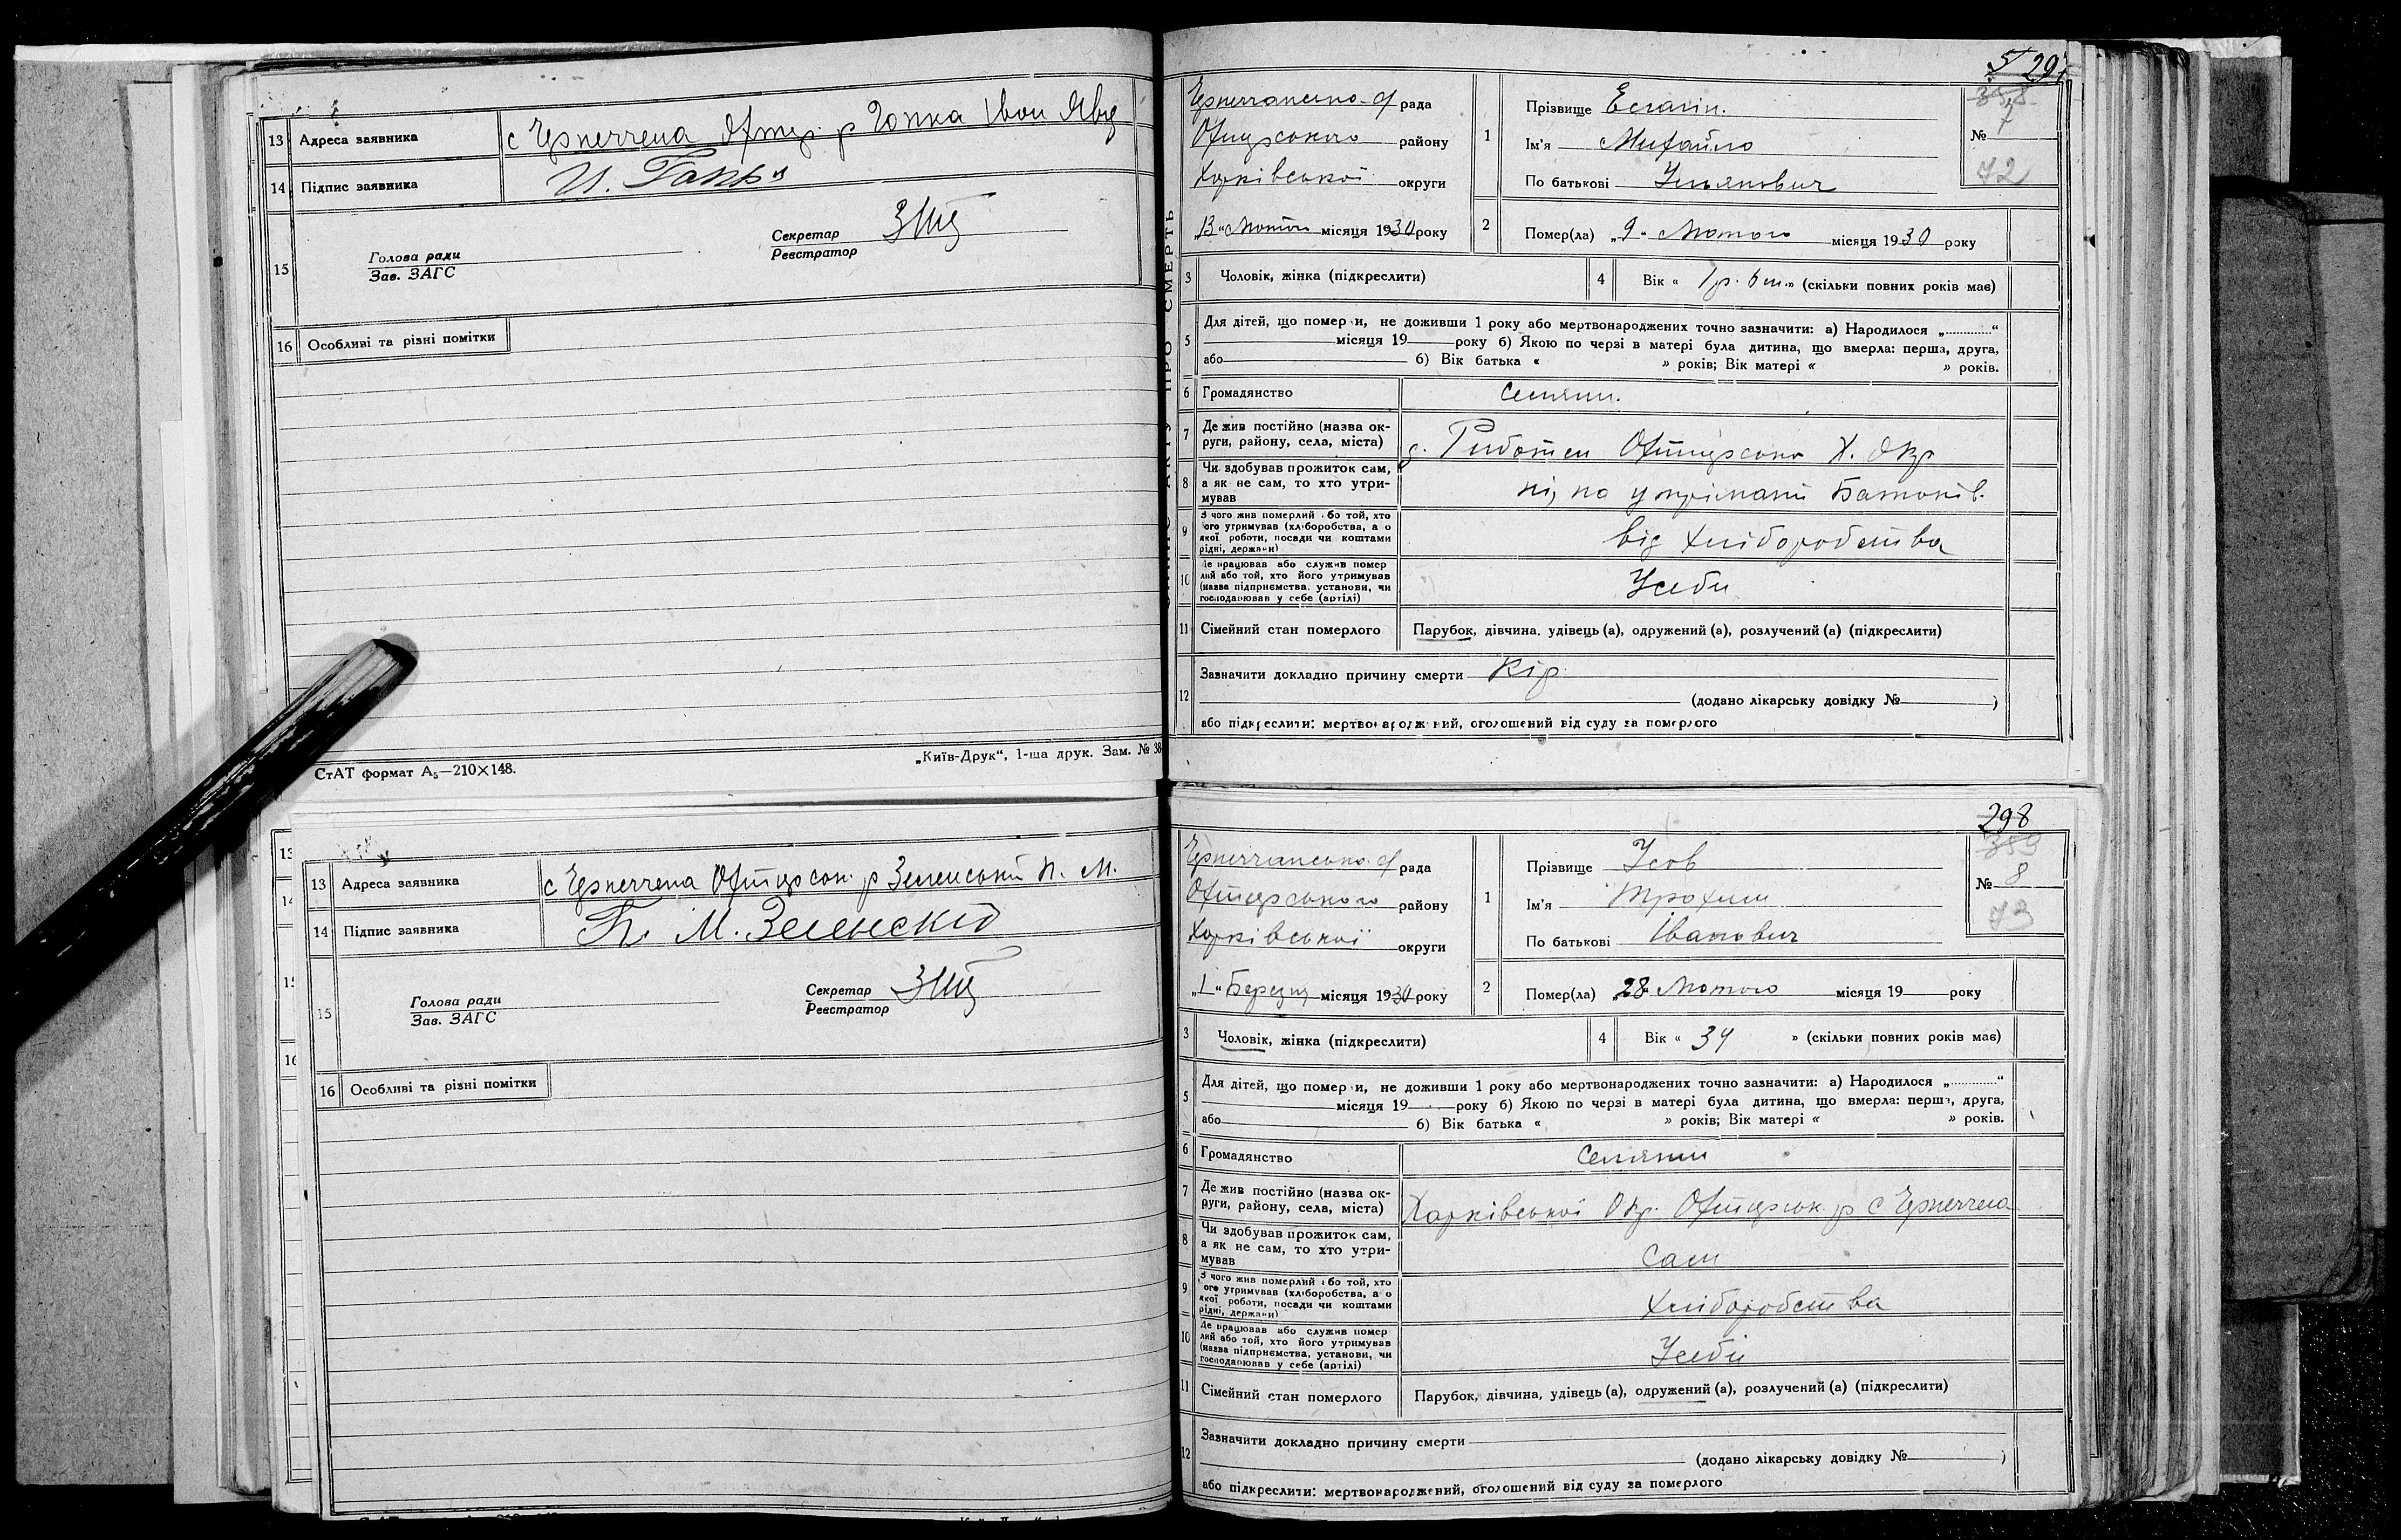 13 Адреса заявника с Чернеччена Охтир. р Гопка Іван Явд
14 Підпис заявника И. Гопка
15 Голова ради
Зав. ЗАГС
Секретар
Реєстратор
16 Особливі та різні помітки
СтАТ формат А₅—210×148.
„Київ-Друк“, 1-ша друк. Зам. № 38
13 Адреса заявника с Чернеччена Охтирськ. р Зеленський П. М.
14 Підпис заявника П. М. Зеленский
15 Голова ради
Зав. ЗАГС
Секретар
Реєстратор
16 Особливі та різні помітки
297
358
№ 7
72
Чернеччансько-С/ рада
Охтирського району
Харківської округи
„13“ Лютого місяця 1930 року
1 Прізвище
Ім'я Михайло
По батькові
2 Помер(ла) „9“ Лютого місяця 1930 року
3 Чоловік, жінка (підкреслити)
4 Вік « 1 р. 6 м. » (скільки повних років має)
5 Для дітей, що померли, не доживши 1 року або мертвонароджених точно зазначити: а) Народилося „............“
місяця 19 року б) Якою по черзі в матері була дитина, що вмерла: перша, друга,
або б) Вік батька « » років; Вік матері « » років.
6 Громадянство Селянин.
7 Де жив постійно (назва ок-
руги, району, села, міста) Охтирсько Х. Окр
8 Чи здобував прожиток сам,
а як не сам, то хто утри-
мував ні, на утрімані Батьків.
9 З чого жив померлий або той, хто
його утримував (хліборобства, або
якої роботи, посади чи коштами
рідні, держави) від хліборобства
10 Де працював або служив помер
лий або той, хто його утримував
(назва підприємства, установи, чи
господарював у себе (артілі) Усеби
11 Сімейний стан померлого Парубок, дівчина, удівець (а), одружений (а), розлучений (а) (підкреслити)
12 Зазначити докладно причину смерти Кір.
(додано лікарську довідку № )
або підкреслити: мертвонароджений, оголошений від суду за померлого
298
359
№ 8
73
Чернеччансько-С/ рада
Охтирського району
Харківської округи
„1“ Березня місяця 1930 року
1 Прізвище Усов
Ім'я Трохим
По батькові Іванович
2 Помер(ла) „28“ Лютого місяця 19 року
3 Чоловік, жінка (підкреслити)
4 Вік « 34 » (скільки повних років має)
5 Для дітей, що померли, не доживши 1 року або мертвонароджених точно зазначити: а) Народилося „............“
місяця 19 року б) Якою по черзі в матері була дитина, що вмерла: перша, друга,
або б) Вік батька « » років; Вік матері « » років.
6 Громадянство Селянин
7 Де жив постійно (назва ок-
руги, району, села, міста) Харківської Окр. Охтирськ. р с Чернеччена
8 Чи здобував прожиток сам,
а як не сам, то хто утри-
мував Сам
9 З чого жив померлий або той, хто
його утримував (хліборобства, або
якої роботи, посади чи коштами
рідні, держави) хліборобства
10 Де працював або служив помер
лий або той, хто його утримував
(назва підприємства, установи, чи
господарював у себе (артілі) Усебі
11 Сімейний стан померлого Парубок, дівчина, удівець (а), одружений (а), розлучений (а) (підкреслити)
12 Зазначити докладно причину смерти
(додано лікарську довідку № )
або підкреслити: мертвонароджений, оголошений від суду за померлого